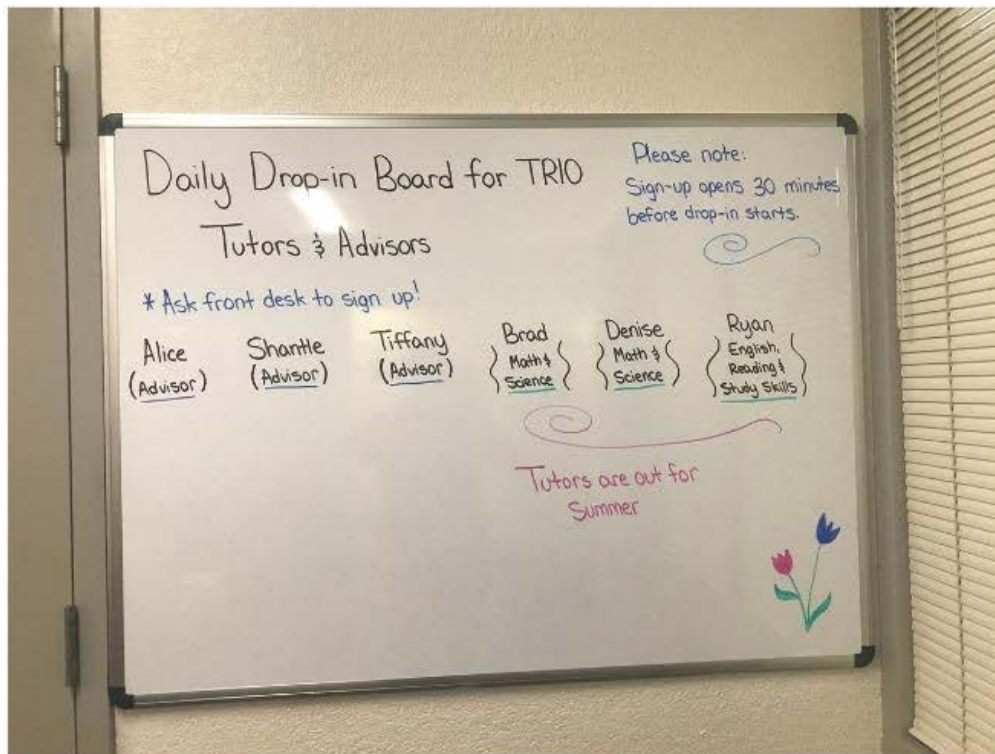 Daily Drop-in Board for TRIO
Tutors & Advisors
Please note:
Sign-up opens 30 minutes
before drop-in starts.
* Ask front desk to sign up!
Alice
(Advisor)
Shantle
(Advisor)
Tiffany
(Advisor)
Brad
Math &
Science
Denise
Math &
Science
Ryan
English,
Reading &
Study Skills
Tutors are out for
Summer